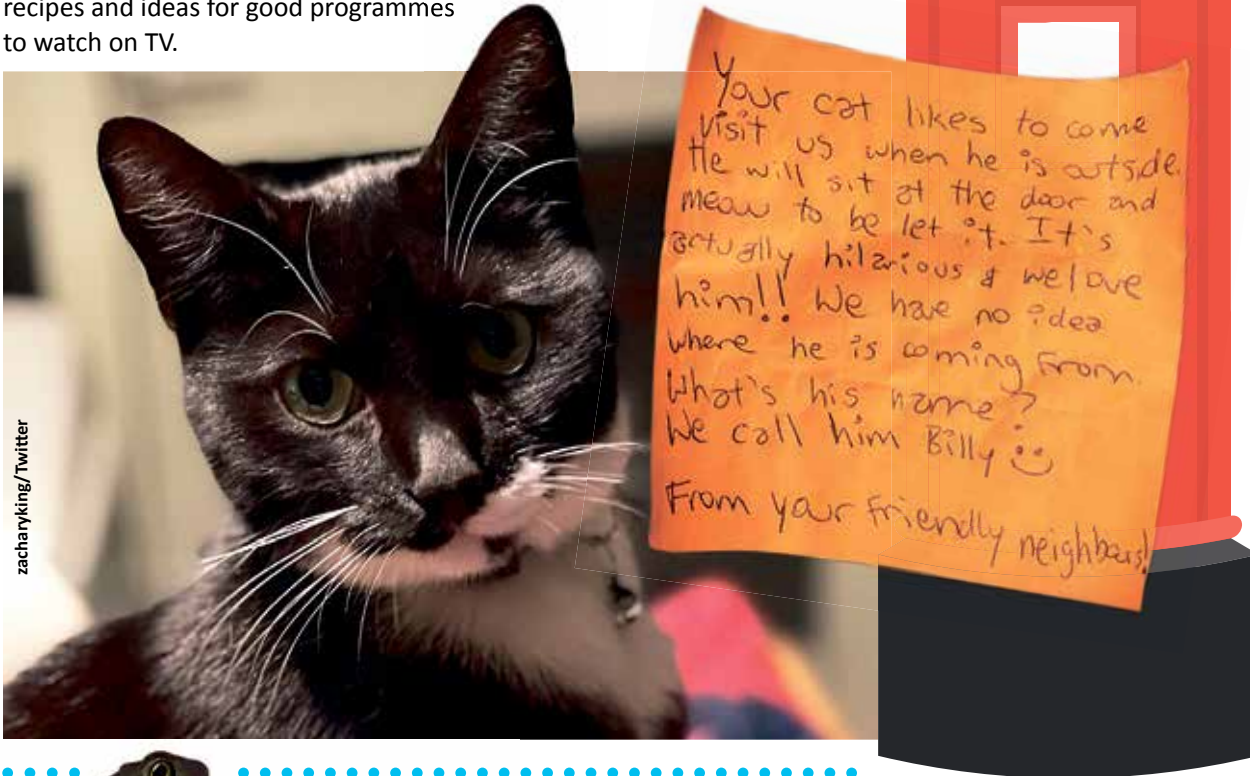 recipes and ideas for good programmes
to watch on TV.
Your cat likes to come
visit us when he is outside.
He will sit at the door and
meow to be let it. It's
actually hilarious & we love
him!! We have no idea
where he is coming from.
What's his name?
We call him Billy :)
From your friendly neighbours!
zacharyking/Twitter